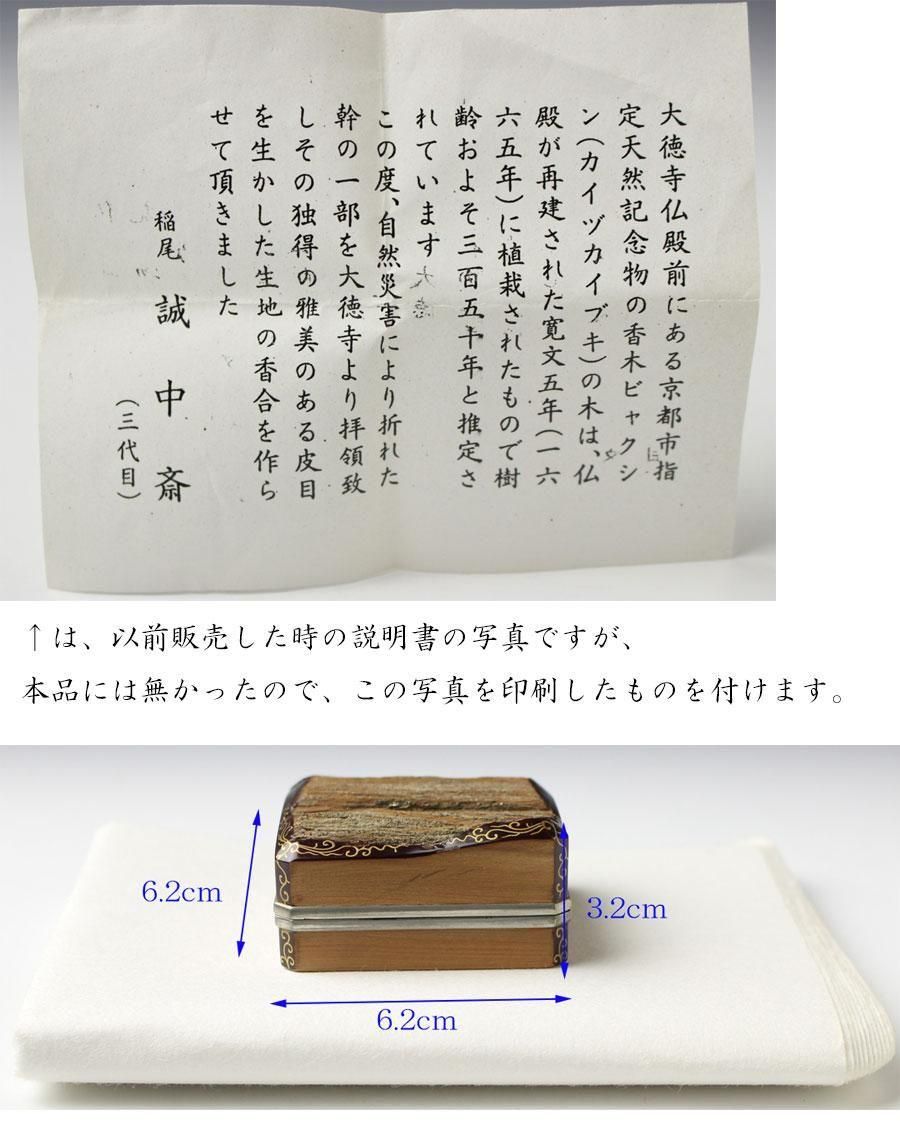 大徳寺仏殿前にある京都市指
定天然記念物の香木ビャクシ
ン(カイヅカイブキ)の木は、仏
殿が再建された寛文五年(一六
六五年)に植栽されたもので樹
齢およそ三百五十年と推定さ
れています
この度、自然災害により折れた
幹の一部を大徳寺より拝領致
しその独得の雅美のある皮目
を生かした生地の香合を作ら
せて頂きました
稲尾 誠中斎
(三代目)
↑は、以前販売した時の説明書の写真ですが、
本品には無かったので、この写真を印刷したものを付けます。
6.2cm
3.2cm
6.2cm